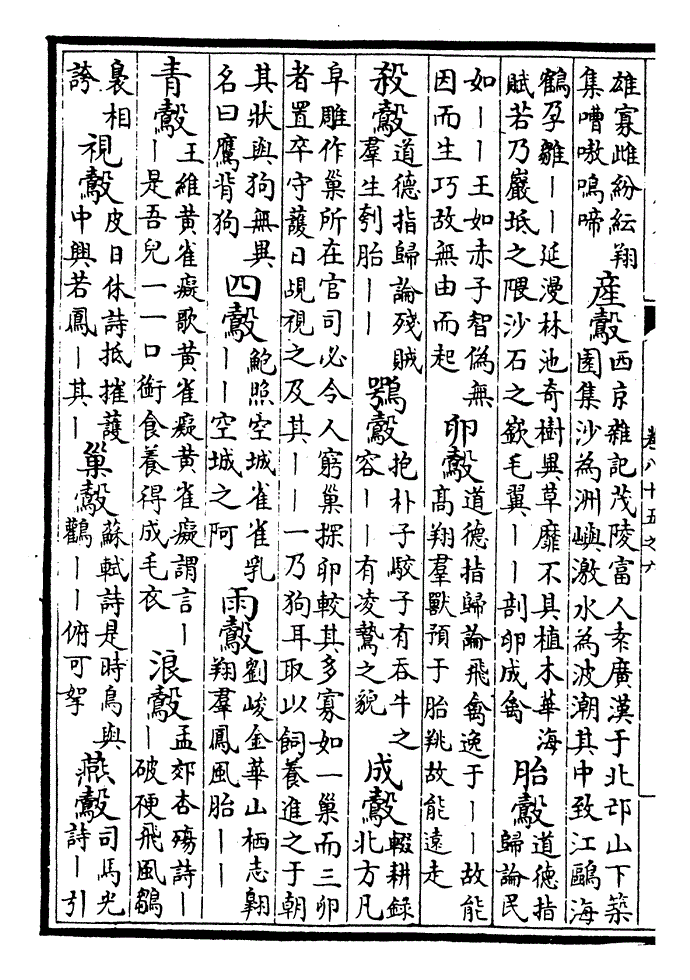 雄寡雌紛紜翔
集嘈嗷鳴啼
産鷇
西京雜記茂陵富人袁廣漢于北邙山下築
園集沙為洲嶼激水為波潮其中致江鷗海
鶴孕雛丨丨延漫林池奇樹異草靡不具植木華海
賦若乃巖坻之隈沙石之嶔毛翼丨丨剖卵成禽
胎鷇
道德指
歸論民
如丨丨王如赤子智偽無
因而生巧故無由而起
卵鷇
道德指歸論飛禽逸于丨丨故能
高翔羣獸預于胎挑故能遠走
殺鷇
道德指歸論殘賊
羣生刳胎丨丨
鶚鷇
抱朴子駮子有吞牛之
容丨丨有凌鷙之貌
成鷇
輟耕録
北方凡
皁雕作巢所在官司必令人窮巢探卵較其多寡如一巢而三卵
者置卒守護日覘視之及其丨丨一乃狗耳取以飼養進之于朝
其狀與狗無異
名曰鷹背狗
四鷇
鮑照空城雀雀乳
丨丨空城之阿
雨鷇
劉峻金華山栖志翱
翔羣鳳風胎丨丨
青鷇
王維黄雀癡歌黄雀癡黄雀癡謂言丨
丨是吾兒一一口銜食養得成毛衣
浪鷇
孟郊杏殤詩丨
丨破硬飛風鶵
裊相
誇
視鷇
皮日休詩抵摧護
中興若鳳丨其丨
巢鷇
蘇軾詩是時鳥與
鸛丨丨俯可拏
燕鷇
司馬光
詩丨引
卷八十五之六